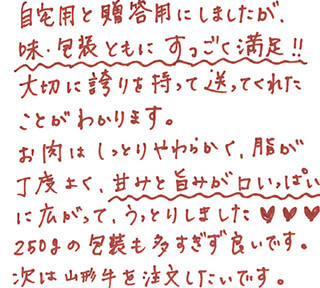 自宅用と贈答用にしましたが、
味・包装ともにすっごく満足!!
大切に誇りを持って送ってくれた
ことがわかります。
お肉はしっとりやわらかく、脂が
丁度よく、甘みと旨みが口いっぱい
に広がって、うっとりしました♥♥♥
250gの包装も多すぎず良いです。
次は山形牛を注文したいです。